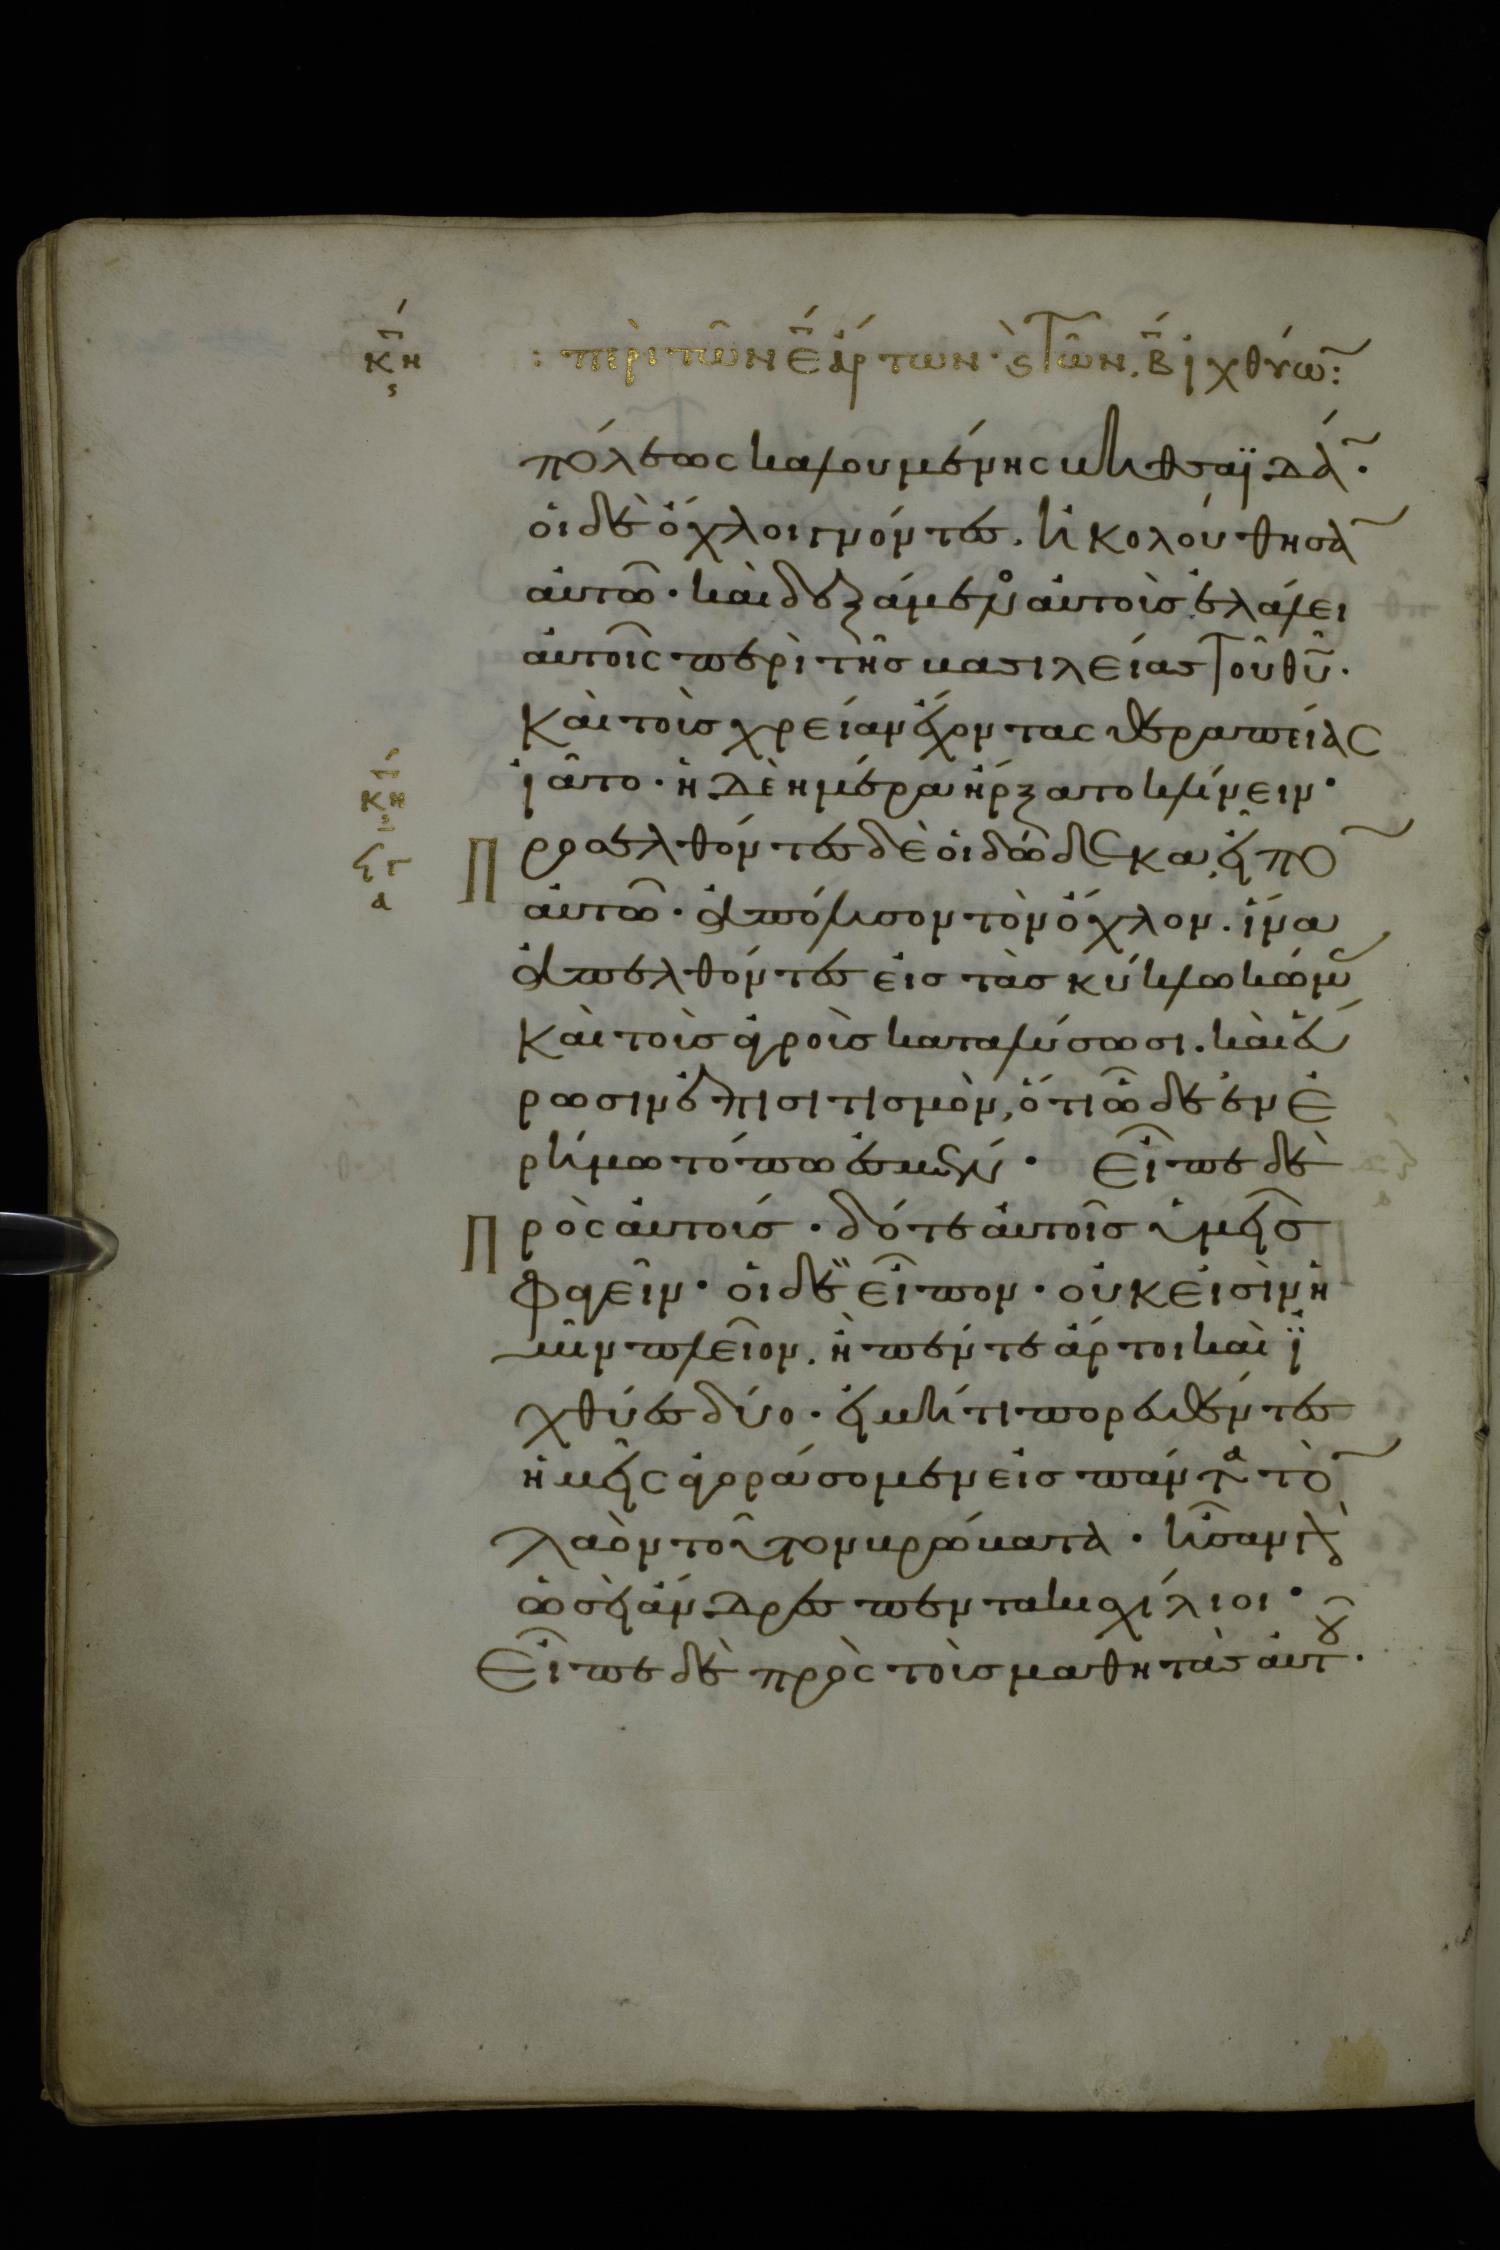 : περὶ τῶν ε̅ ἄρτων · ϛ τῶν β̅ ἰχθύω̅ :
κ̅η
ϛ
πόλεως καλουμένης βηθσαϊδά̅ ·
οἱ δὲ ὄχλοι γνόντες . ἠκολούθησα̅
αὐτῶ · καὶ δεξάμενο αὐτοὺσ ἐλάλει
αὐτοῖς περὶ τῆσ βασιλείασ τοῦ θῦ ·
Καὶ τοὺσ χρείαν ἔχοντας θεραπείας
ἰᾶτο · ἡ δὲ ἡμέρα ἤρξατο κλίνειν ·
κ̅η
Προσελθόντες δὲ οἱ δώδεκα, εἶπο̅
α
αὐτῶ · ἀπόλυσον τὸν ὄχλον . ἵνα
ἀπελθόντες εἰσ τὰσ κύκλω κώμ
Καὶ τοὺσ ἀγροὺσ καταλύσωσι . καὶ εὕ
ρωσιν ἐπισιτισμὸν, ὅτι ὧδε ἐν ἐ
ρήμω τόπω ἐσμέν · Εἶπε δὲ
Πρὸς αὐτούσ · δότε αὐτοῖσ ὑμεῖσ
φαγεῖν · οἱ δὲ εἶπον · οὐκ εἰσὶν ἡ
μῖν πλεῖον . ἢ πέντε ἄρτοι καὶ ἰ
χθύεσ δύο · εἰ μή τι πορευθέντεσ
ἡμεῖς ἀγοράσομεν εἰσ πάντα το̅
λαὸν τοῦτον βρώματα · ἦσαν γὰρ
ὡσεὶ ἄνδρεσ πεντακισχίλιοι ·
Εἶπε δὲ πρὸς τοὺσ μαθητὰσ αὐτοῦ ·